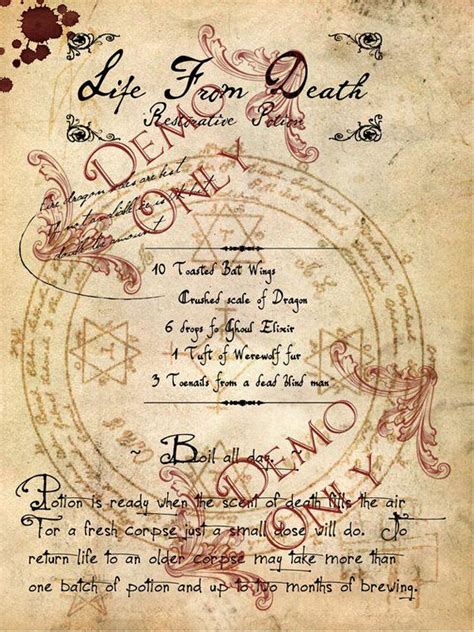 Life From Death
Restorative Potion
Demo
Only
Fire dragon scales are best
If no
double the amount
10 Toasted Bat Wings
Crushed scale of Dragon
6 drops fo Ghoul Elixir
1 Tuft of Werewolf fur
3 Toenails from a dead blind man
~ Boil all day. ~
Demo
Only
Potion is ready when the scent of death fills the air
For a fresh corpse just a small dose will do. To
return life to an older corpse may take more than
one batch of potion and up to two months of brewing.